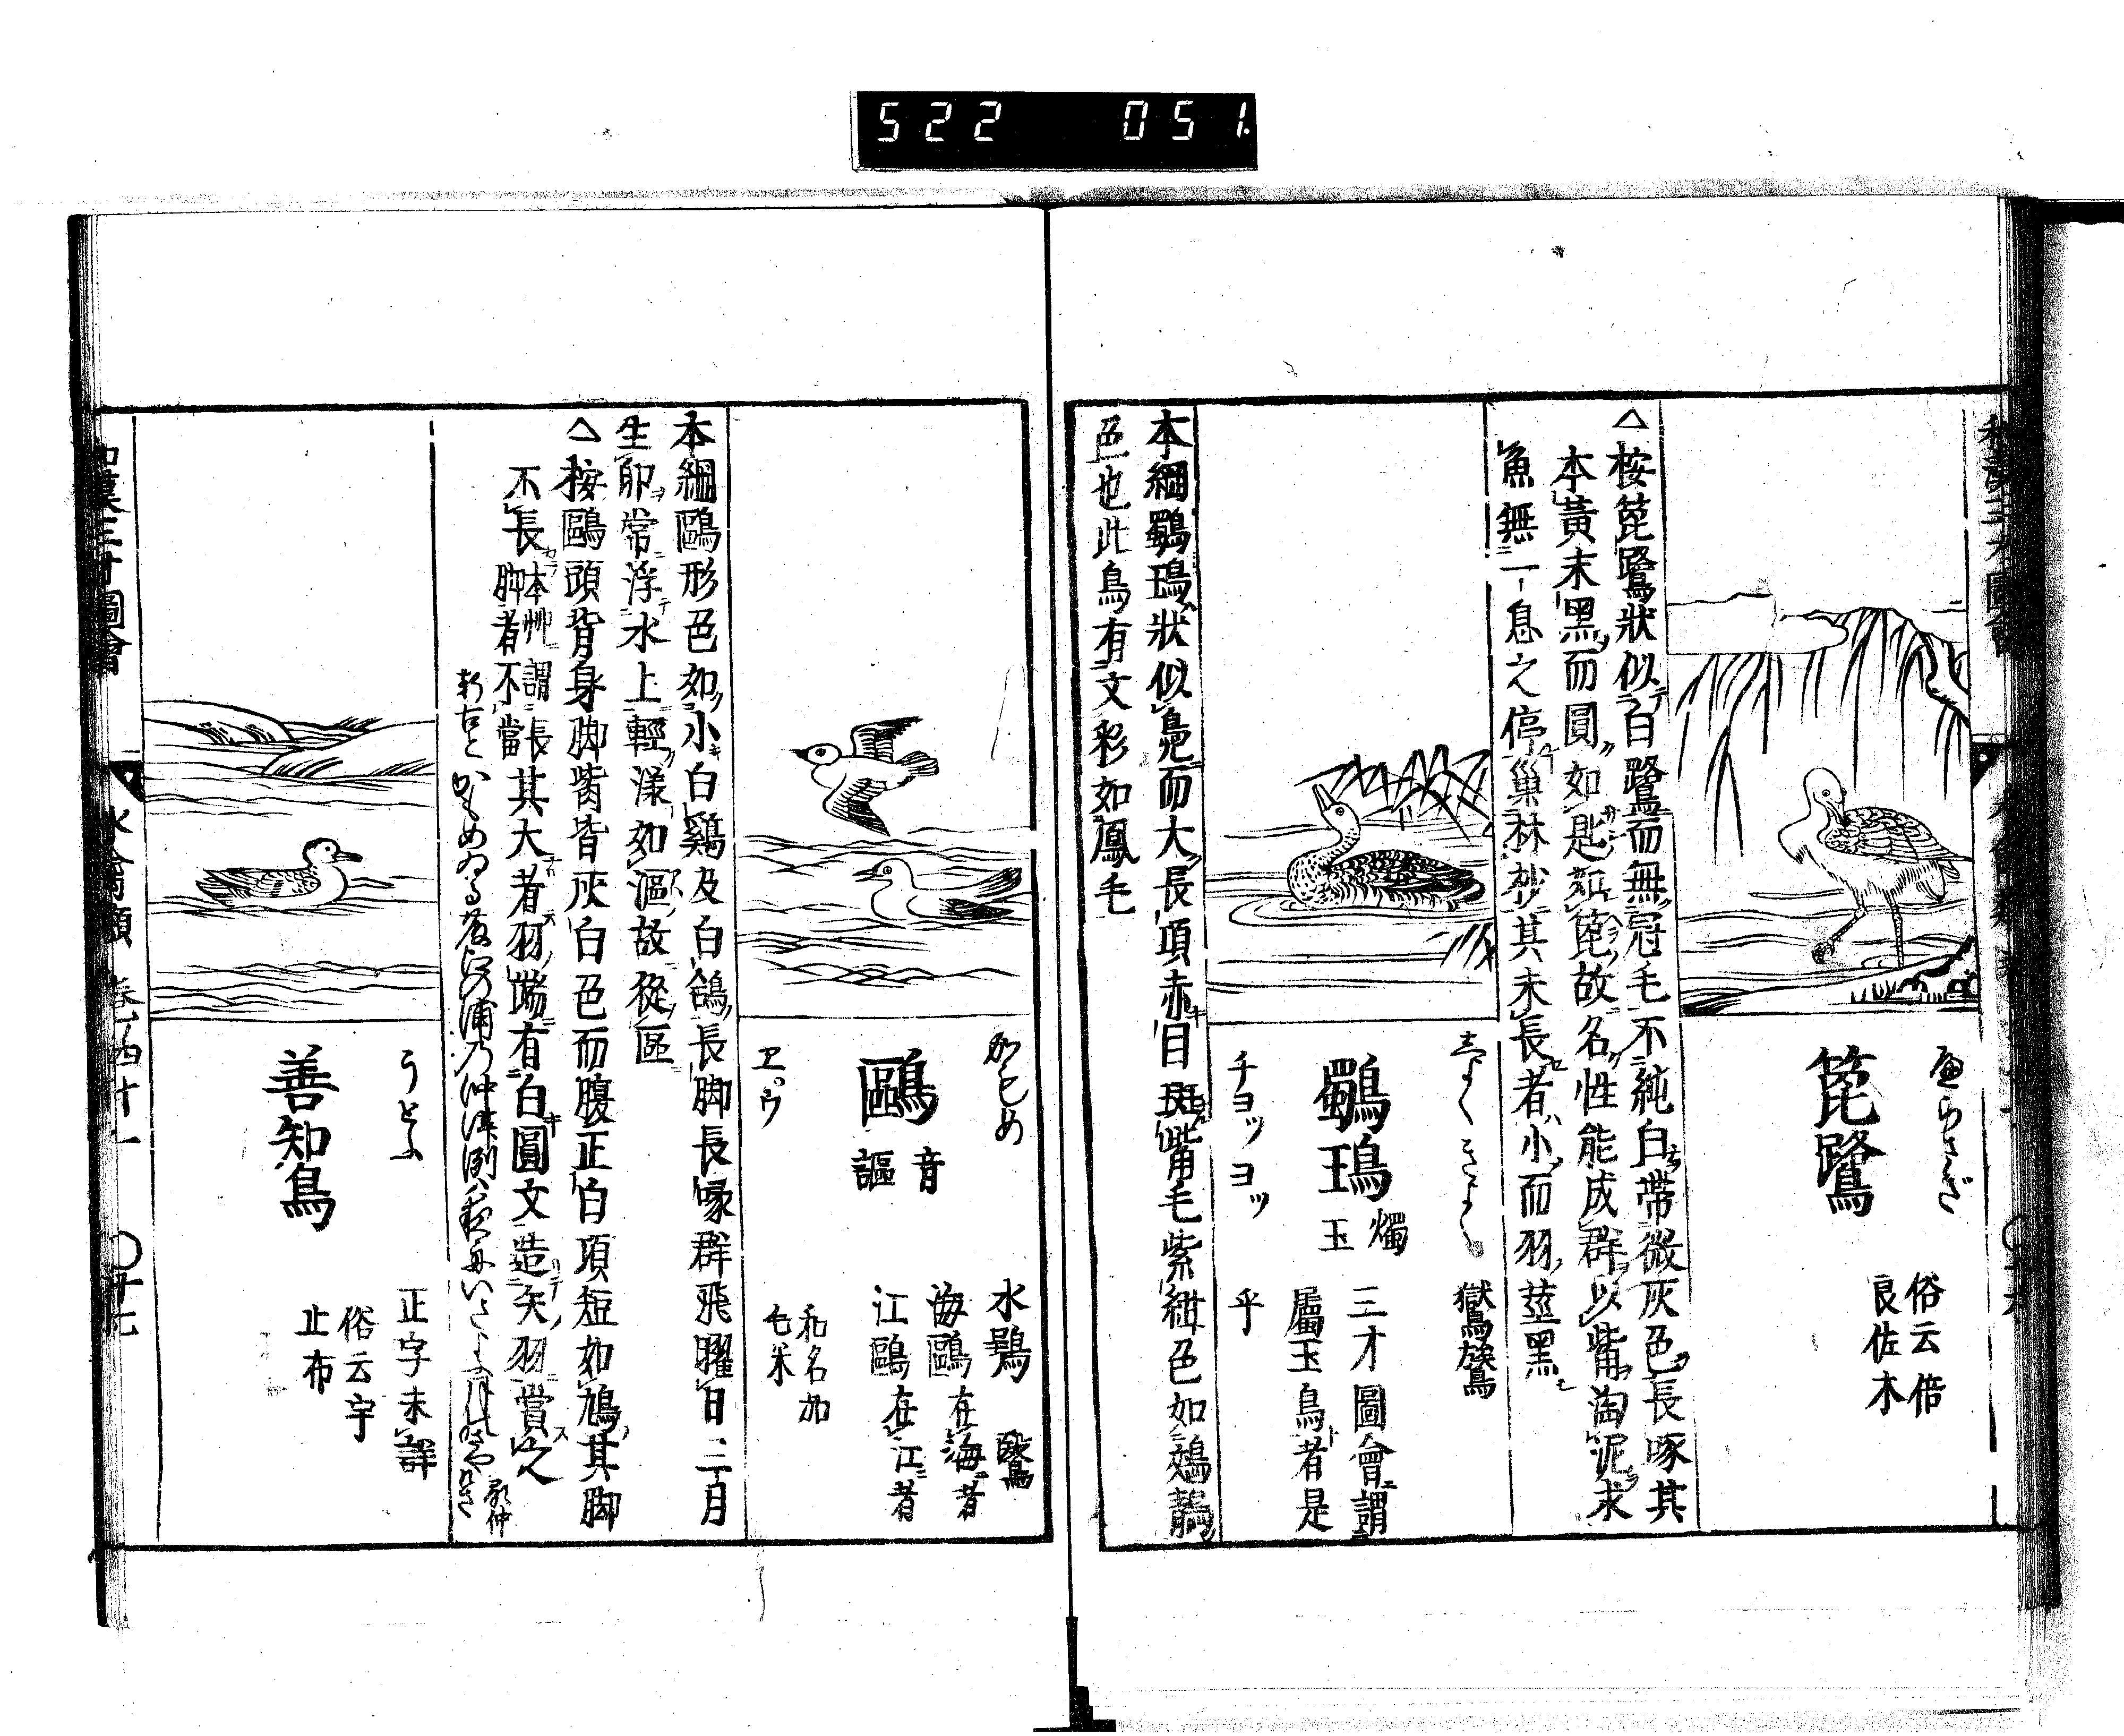 522 051.
へらさぎ
箆鷺
俗云倍
良佐木
△按箆鷺狀似白鷺而無冠毛不純白帶微灰色長啄其
本黃末黑而圓如匙箆故名性能成群以觜淘泥求
魚無一息之停巢林杪其未長者小而羽莖黑
しよくぎよく
鸀鳿
燭
玉
チヨッ ヨッ
鸑鷟
三才圖會謂
屬玉鳥者是
乎
本綱鸀鳿狀似鳧而大長項赤目斑觜毛紫紺色如鵁鶄
色也此鳥有文彩如鳳毛
かもめ
鷗
音
謳
ヱ゜ウ
水鴞 鷖
海鷗在海者
江鷗在江者
和名加
毛米
本綱鷗形色如小白鷄及白鴿長脚長喙群飛耀日三月
生卵常浮水上輕漾如漚故從區
△按鷗頭背身脚觜皆灰白色而腹正白項短如鳩其脚
不長本艸謂長
脚者不當其大者羽端有白圓文造矢羽賞之
新古 かもめゐる
うとふ
善知鳥
正字未詳
俗云宇
止布
和漢三才圖會 水禽類 卷四十一 ○廿七